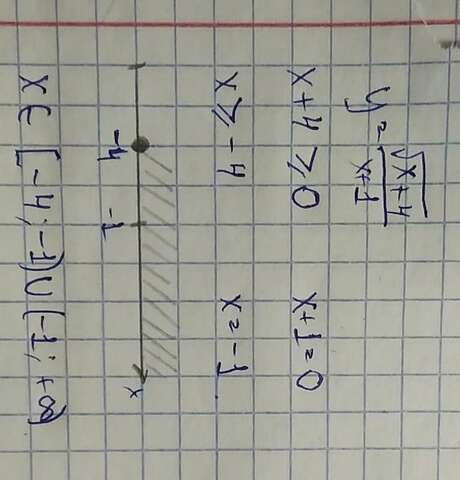 y = √(x+4)/(x+1)
x+4 ⩾ 0 x+1=0
x ⩾ -4 x=-1
-4 -1 x
x ∈ [-4; -1) ∪ (-1; +∞)